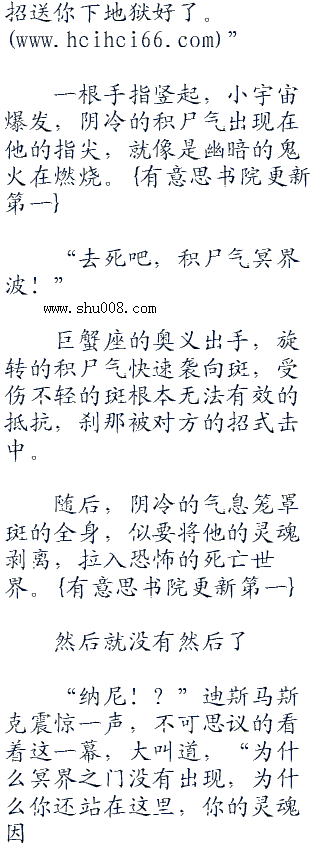 招送你下地狱好了。
(www.hcihci66.com)”
一根手指竖起，小宇宙
爆发，阴冷的积尸气出现在
他的指尖，就像是幽暗的鬼
火在燃烧。{有意思书院更新
第一}
“去死吧，积尸气冥界
波！”
www.shu008.com
巨蟹座的奥义出手，旋
转的积尸气快速袭向斑，受
伤不轻的斑根本无法有效的
抵抗，刹那被对方的招式击
中。
随后，阴冷的气息笼罩
斑的全身，似要将他的灵魂
剥离，拉入恐怖的死亡世
界。{有意思书院更新第一}
然后就没有然后了
“纳尼！？”迪斯马斯
克震惊一声，不可思议的看
着这一幕，大叫道，“为什
么冥界之门没有出现，为什
么你还站在这里，你的灵魂
因